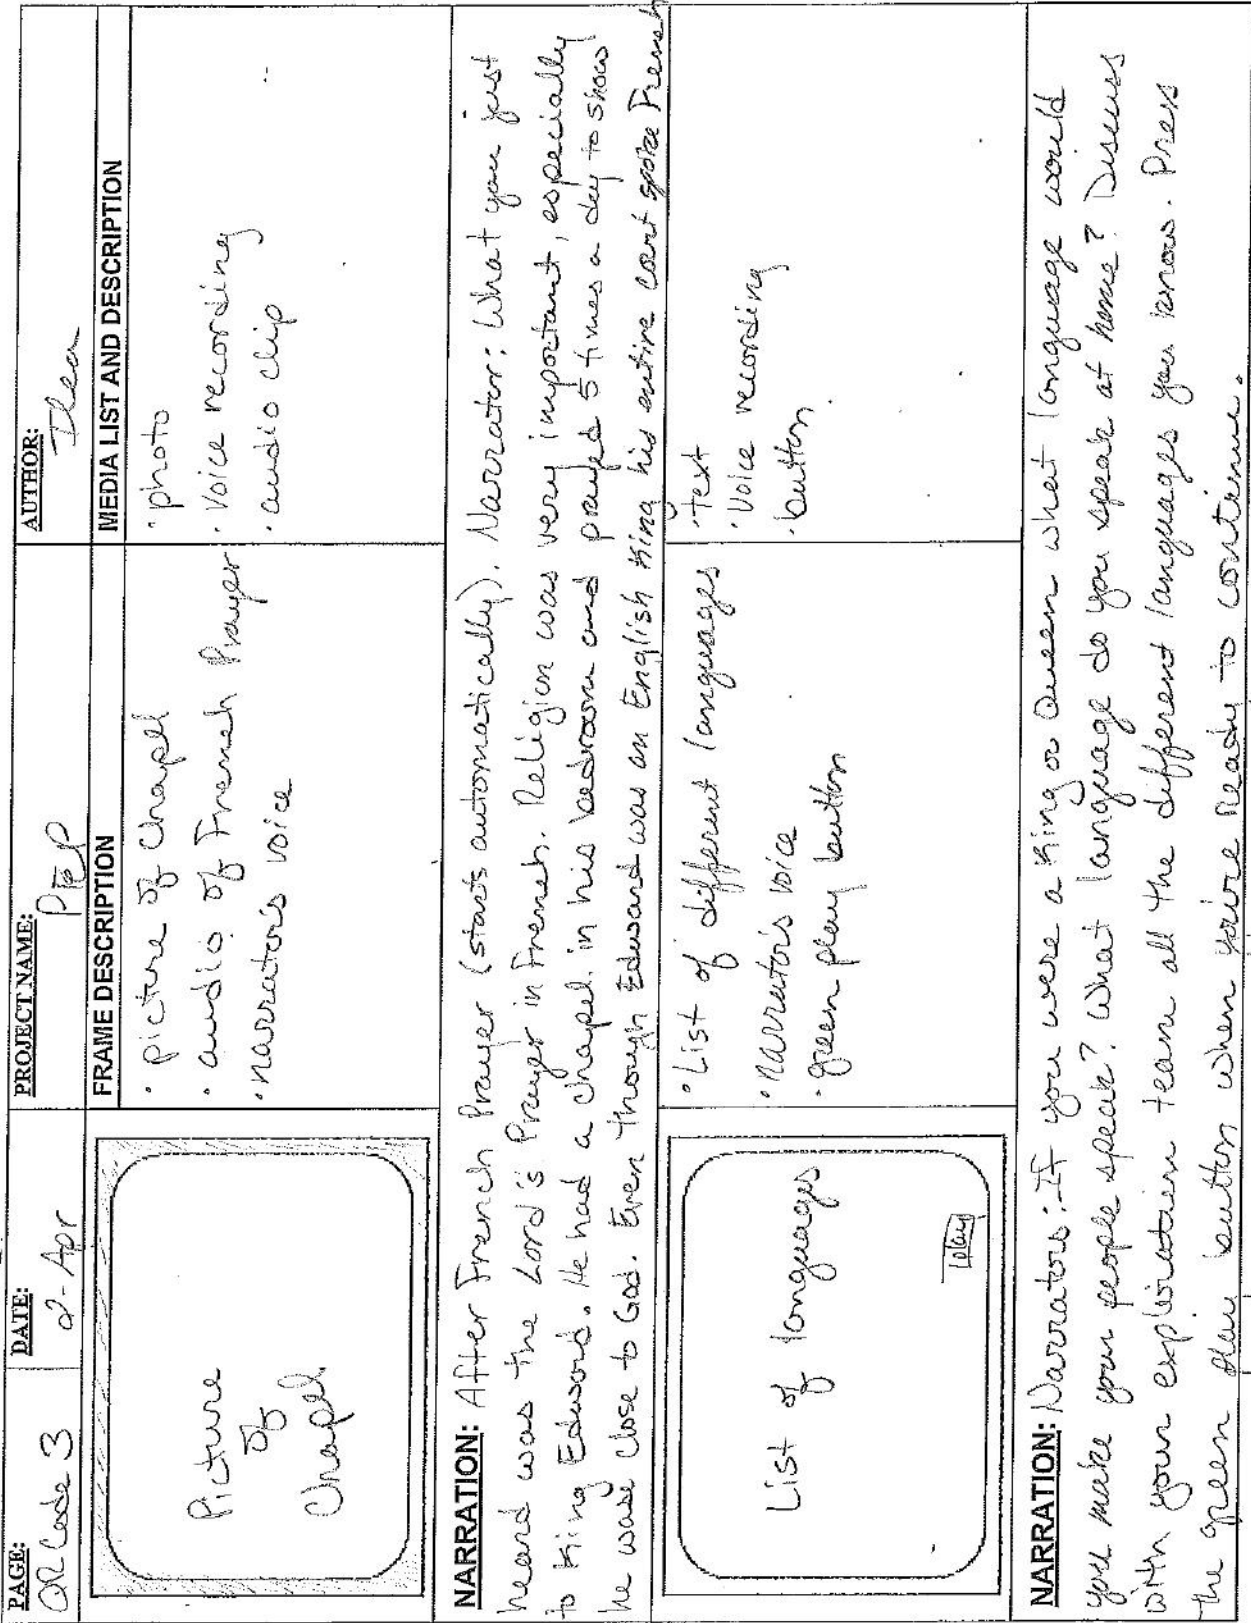 PAGE: DATE: PROJECT NAME: AUTHOR:
QR Code 3 2-Apr PEP Ilea
FRAME DESCRIPTION MEDIA LIST AND DESCRIPTION
Picture
of
Chapel
• picture of Chapel
• audio of French Prayer
• narrator's voice
• photo
• Voice recording
• audio clip
NARRATION: After French Prayer (starts automatically). Narrator: What you just
heard was the Lord's Prayer in French. Religion was very important, especially
to King Edward. He had a chapel in his bedroom and prayed 5 times a day to show
he was close to God. Even though Edward was an English King his entire court spoke French
List of languages
play
• List of different languages
• narrator's voice
• green play button
• text
• Voice recording
• button
NARRATION: Narrators: If you were a King or Queen what language would
you make your people speak? What language do you speak at home? Discuss
with your exploration team all the different languages you know. Press
the green play button when you're ready to continue.